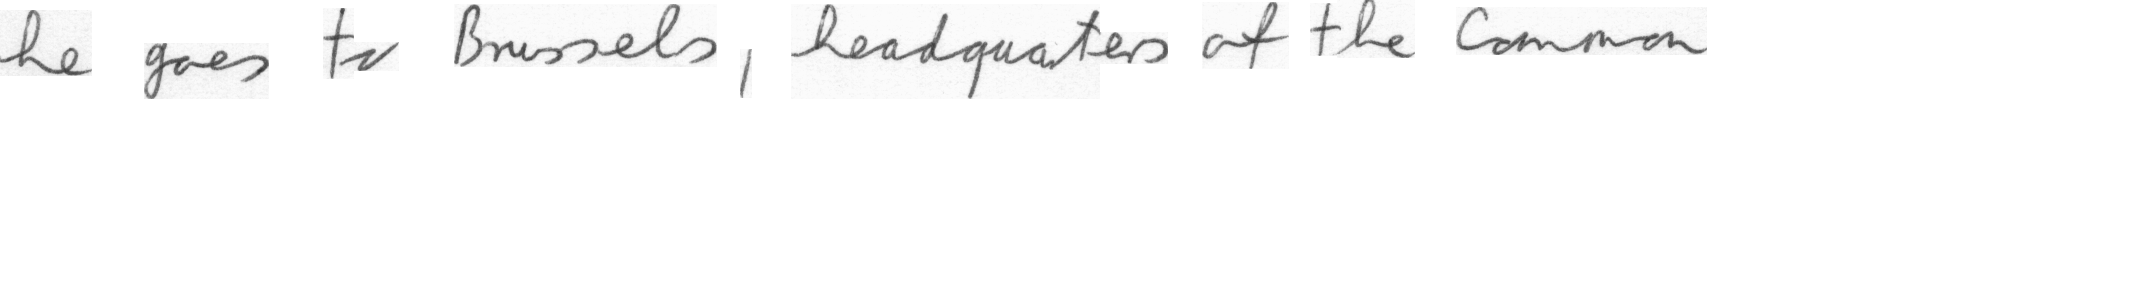 he goes to Brussels, headquarters of the Common